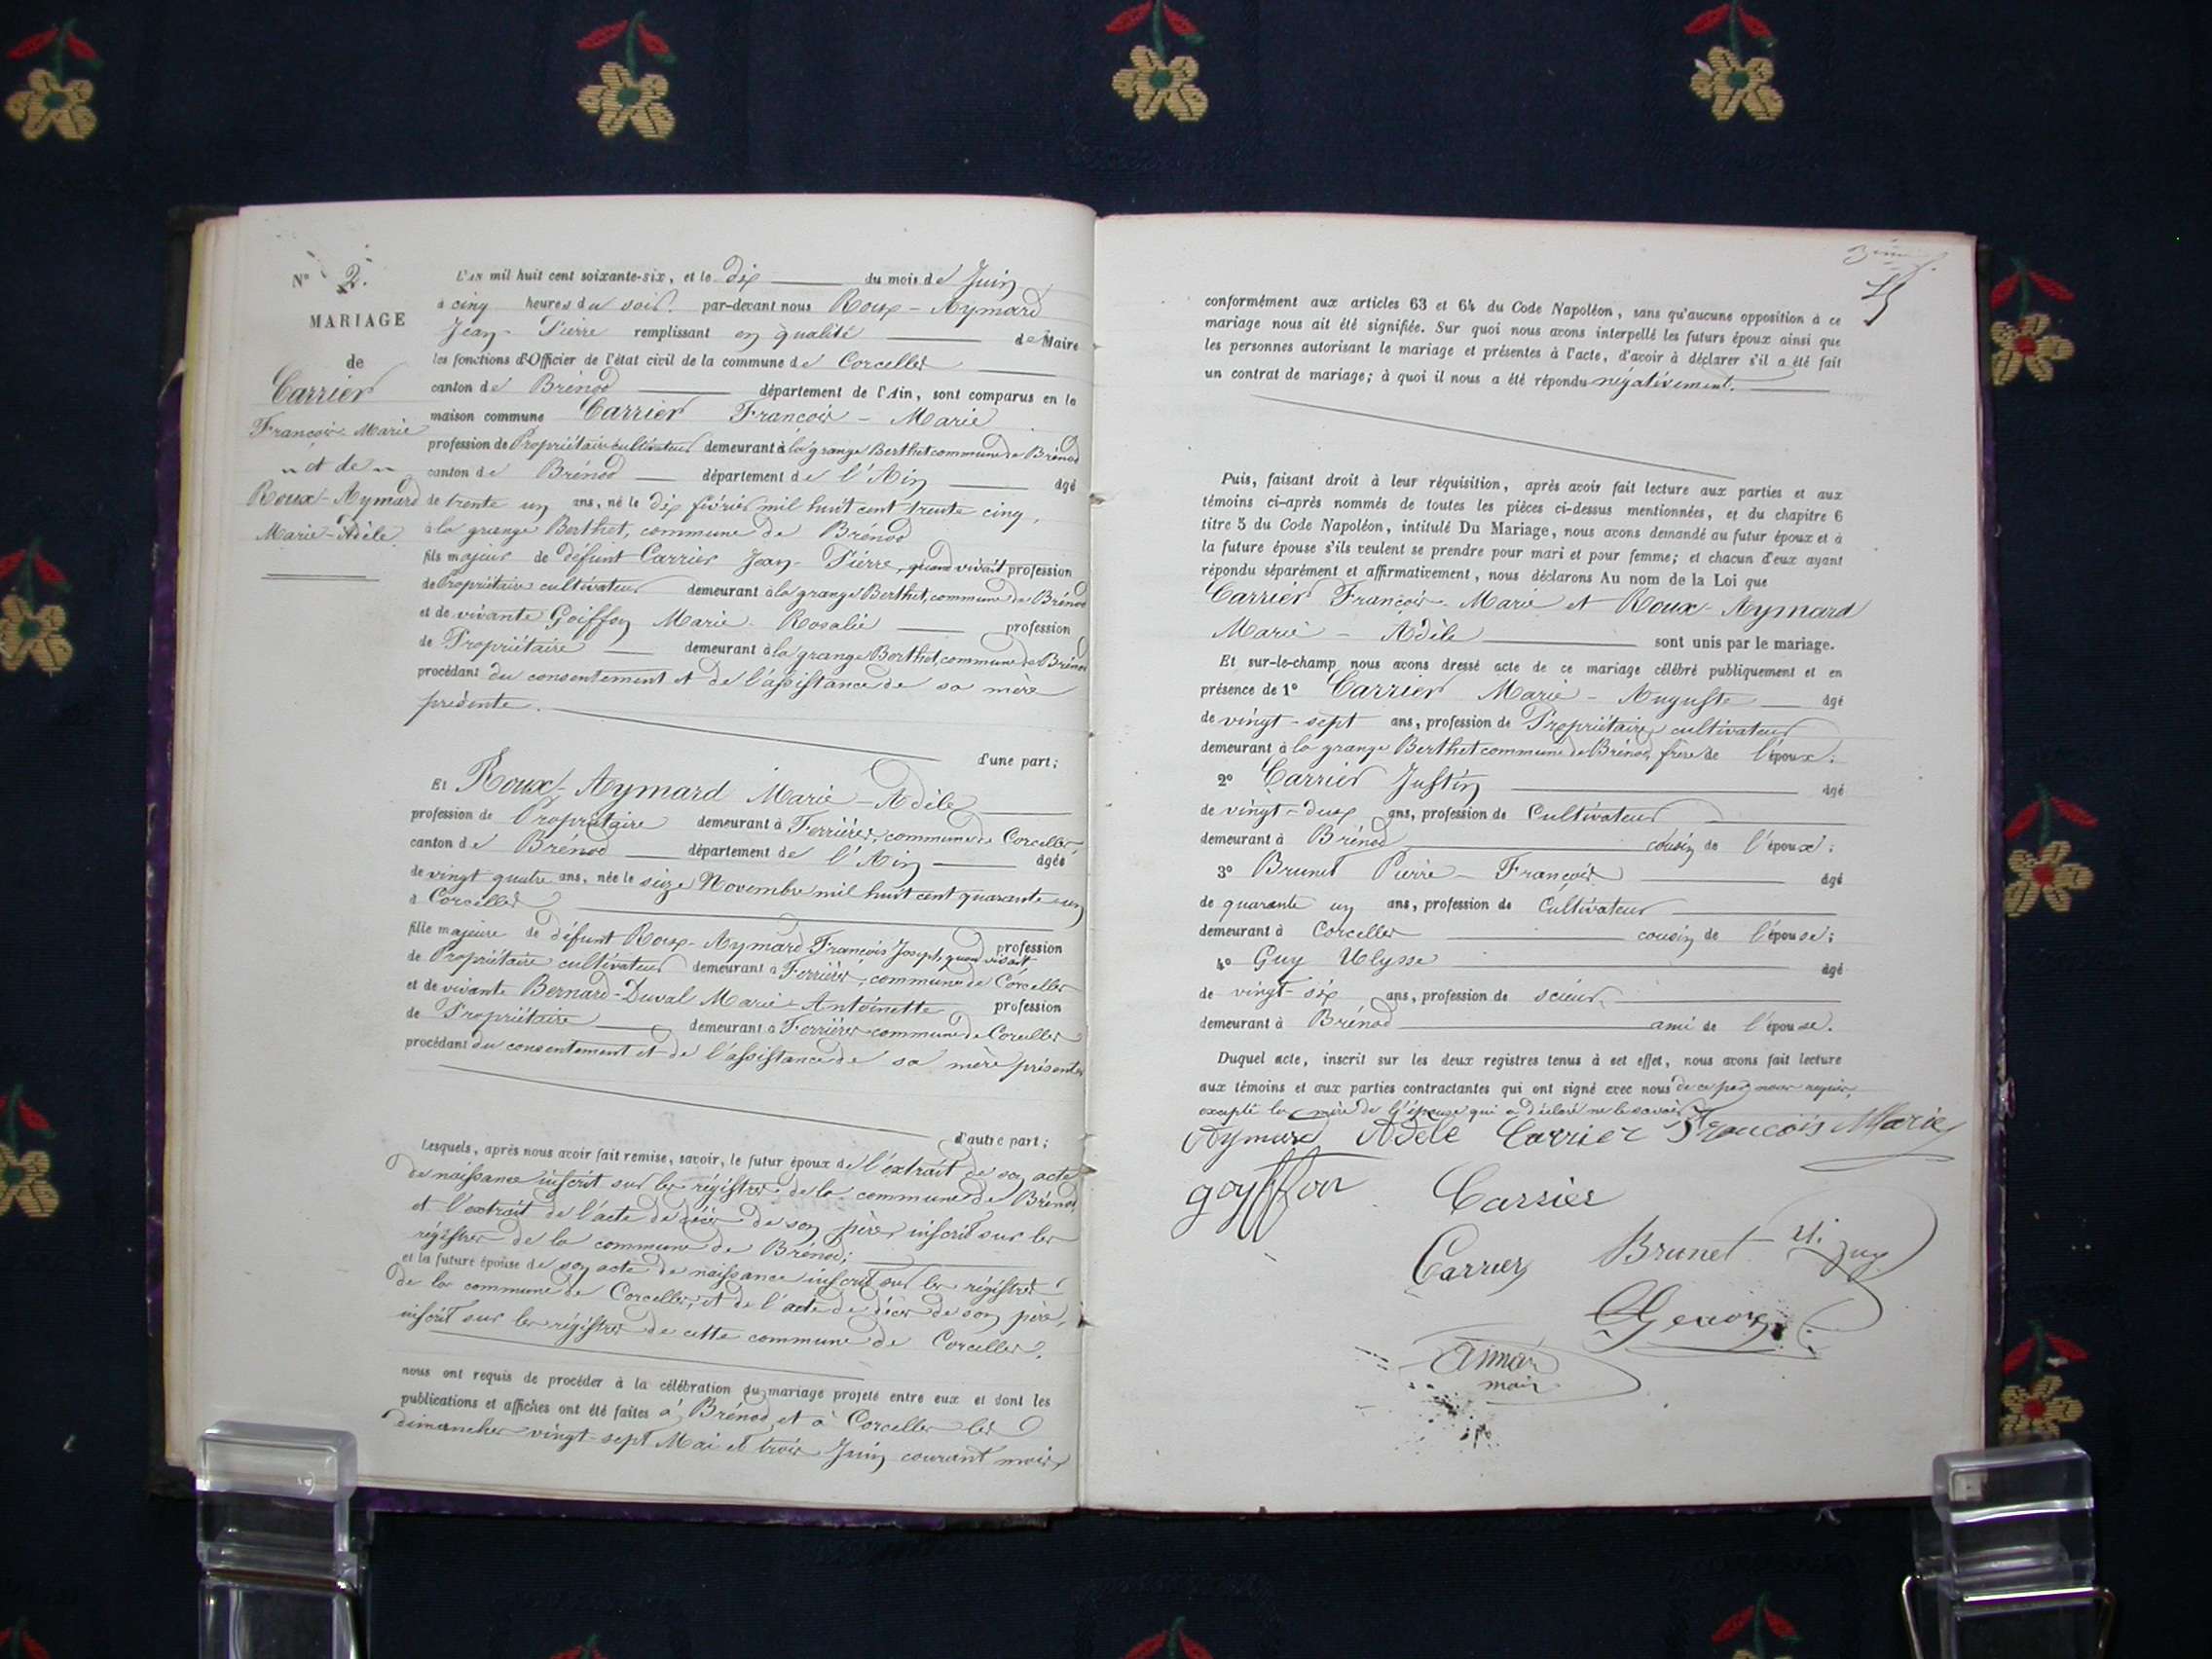 N° 2.
MARIAGE
de
Carrier
François-Marie
et de
Roux-Aymard
Marie-Adèle
L'AN mil huit cent soixante-six, et le dix du mois de Juin
à cinq heures du soir. par-devant nous Roux-Aymard
Jean-Pierre remplissant en qualité de Maire
les fonctions d'Officier de l'état civil de la commune de Corcelles
canton de Brénod département de l'Ain, sont comparus en la
maison commune Carrier François-Marie
profession de Propriétaire cultivateur demeurant à la grange Berthet commune de Brénod
canton de Brénod département de l'Ain âgé
de trente un ans, né le dix février mil huit cent trente cinq,
à la grange Berthet, commune de Brénod
fils majeur de défunt Carrier Jean-Pierre, quand vivait profession
de Propriétaire cultivateur demeurant à la grange Berthet, commune de Brénod
et de vivante Goiffon Marie-Rosalie profession
de Propriétaire demeurant à la grange Berthet, commune de Brénod
procédant du consentement et de l'assistance de sa mère
présente.
d'une part;
Et Roux-Aymard Marie-Adèle
profession de Propriétaire demeurant à Ferrières, commune de Corcelles
canton de Brénod département de l'Ain âgée
de vingt quatre ans, née le seize Novembre mil huit cent quarante-un
à Corcelles
fille majeure de défunt Roux-Aymard François Joseph, quand vivait profession
de Propriétaire cultivateur demeurant à Ferrières, commune de Corcelles
et de vivante Bernard-Duval Marie-Antoinette profession
de Propriétaire demeurant à Ferrières commune de Corcelles
procédant du consentement et de l'assistance de sa mère présente
d'autre part;
Lesquels, après nous avoir fait remise, savoir, le futur époux de l'extrait de son acte
de naissance inscrit sur les régistres de la commune de Brénod,
et l'extrait de l'acte de décès de son père inscrit sur les
régistres de la commune de Brénod;
et la future épouse de son acte de naissance inscrit sur les régistres
de la commune de Corcelles, et de l'acte de décès de son père,
inscrit sur les régistres de cette commune de Corcelles.
nous ont requis de procéder à la célébration du mariage projeté entre eux et dont les
publications et affiches ont été faites à Brénod, et à Corcelles les
dimanches vingt-sept Mai et trois Juin courant mois
conformément aux articles 63 et 64 du Code Napoléon, sans qu'aucune opposition à ce
mariage nous ait été signifiée. Sur quoi nous avons interpellé les futurs époux ainsi que
les personnes autorisant le mariage et présentes à l'acte, d'avoir à déclarer s'il a été fait
un contrat de mariage; à quoi il nous a été répondu négativement.
Puis, faisant droit à leur réquisition, après avoir fait lecture aux parties et aux
témoins ci-après nommés de toutes les pièces ci-dessus mentionnées, et du chapitre 6
titre 5 du Code Napoléon, intitulé Du Mariage, nous avons demandé au futur époux et à
la future épouse s'ils veulent se prendre pour mari et pour femme; et chacun d'eux ayant
répondu séparément et affirmativement, nous déclarons Au nom de la Loi que
Carrier François-Marie et Roux-Aymard
Marie-Adèle sont unis par le mariage.
Et sur-le-champ nous avons dressé acte de ce mariage célébré publiquement et en
présence de 1° Carrier Marie-Auguste âgé
de vingt-sept ans, profession de Propriétaire cultivateur
demeurant à la grange Berthet commune de Brénod, frère de l'époux.
2° Carrier Justin âgé
de vingt-deux ans, profession de Cultivateur
demeurant à Brénod cousin de l'époux;
3° Brunet Pierre-François âgé
de quarante un ans, profession de Cultivateur
demeurant à Corcelles cousin de l'épouse;
4° Guy Ulysse âgé
de vingt-six ans, profession de scieur
demeurant à Brénod ami de l'épouse.
Duquel acte, inscrit sur les deux registres tenus à cet effet, nous avons fait lecture
aux témoins et aux parties contractantes qui ont signé avec nous de ce par nous requis,
excepté la mère de l'épouse qui a déclaré ne le savoir
Aymard Adèle Carrier François Marie
goyffon Carrier
Carrier Brunet U. Guy